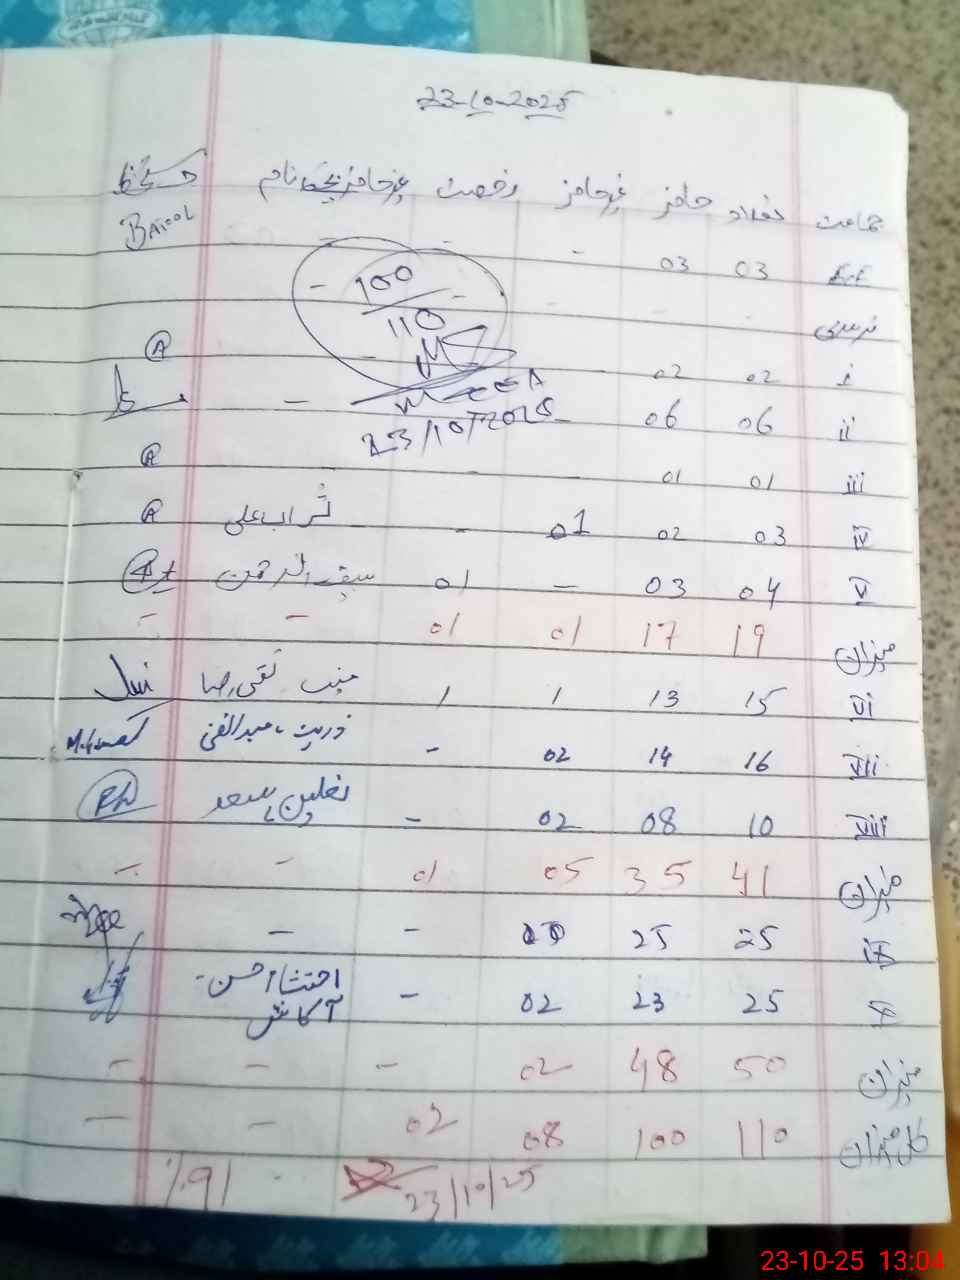 23-10-2025
جماعت تعداد حاضر غیرحاضر رخصت غیرحاضر بچے کا نام دستخط
E.C.E 03 03 - - - BATOOL
نرسری - - - - -
100
110
I 02 02 - - -
II 06 06 - - -
23/10/2025
III 01 01 - - -
IV 03 02 01 - تراب علی
V 04 03 - 01 سیف الرحمن
میزان 19 17 01 01 - -
VI 15 13 1 1 منیب تقی رضا
VII 16 14 02 - ذریت، عبدالغنی
VIII 10 08 02 - ثعلین، سعد
میزان 41 35 05 01 - -
IX 25 25 - -
X 25 23 02 - احتشام حسن-
آکاش
میزان 50 48 02 - - -
کل میزان 110 100 08 02 - -
23/10/25 %91
23-10-25 13:04